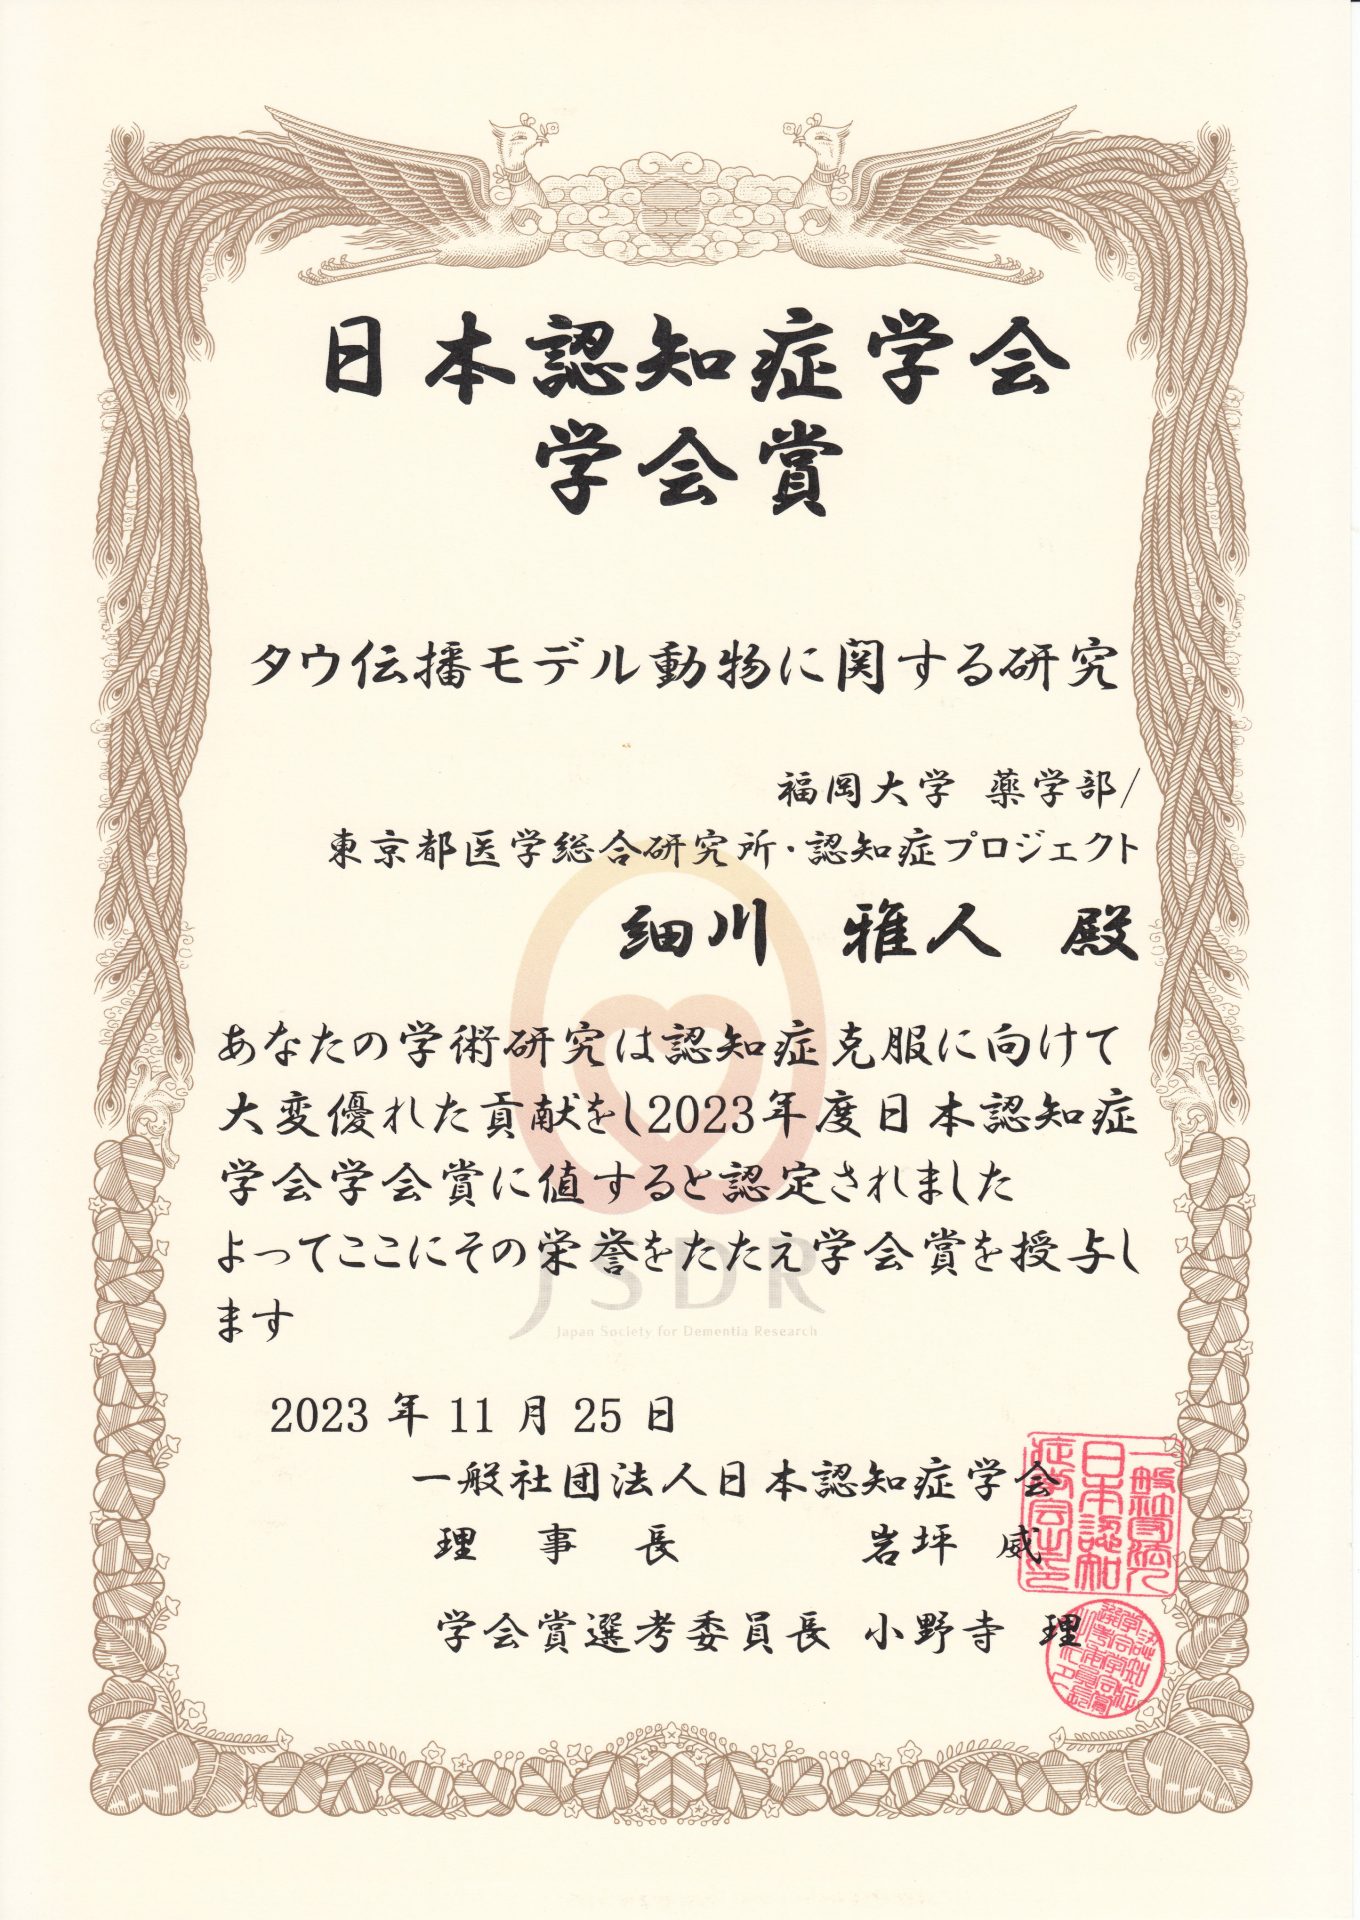 日本認知症学会
学会賞
タウ伝播モデル動物に関する研究
福岡大学 薬学部/
東京都医学総合研究所・認知症プロジェクト
細川 雅人 殿
あなたの学術研究は認知症克服に向けて
大変優れた貢献をし2023年度日本認知症
学会学会賞に値すると認定されました
よってここにその栄誉をたたえ学会賞を授与し
ます
JSDR
Japan Society for Dementia Research
2023 年 11 月 25 日
一般社団法人日本認知症学会
理 事 長 岩坪 威
学会賞選考委員長 小野寺 理
一般社団法人
日本認知
症学会之印